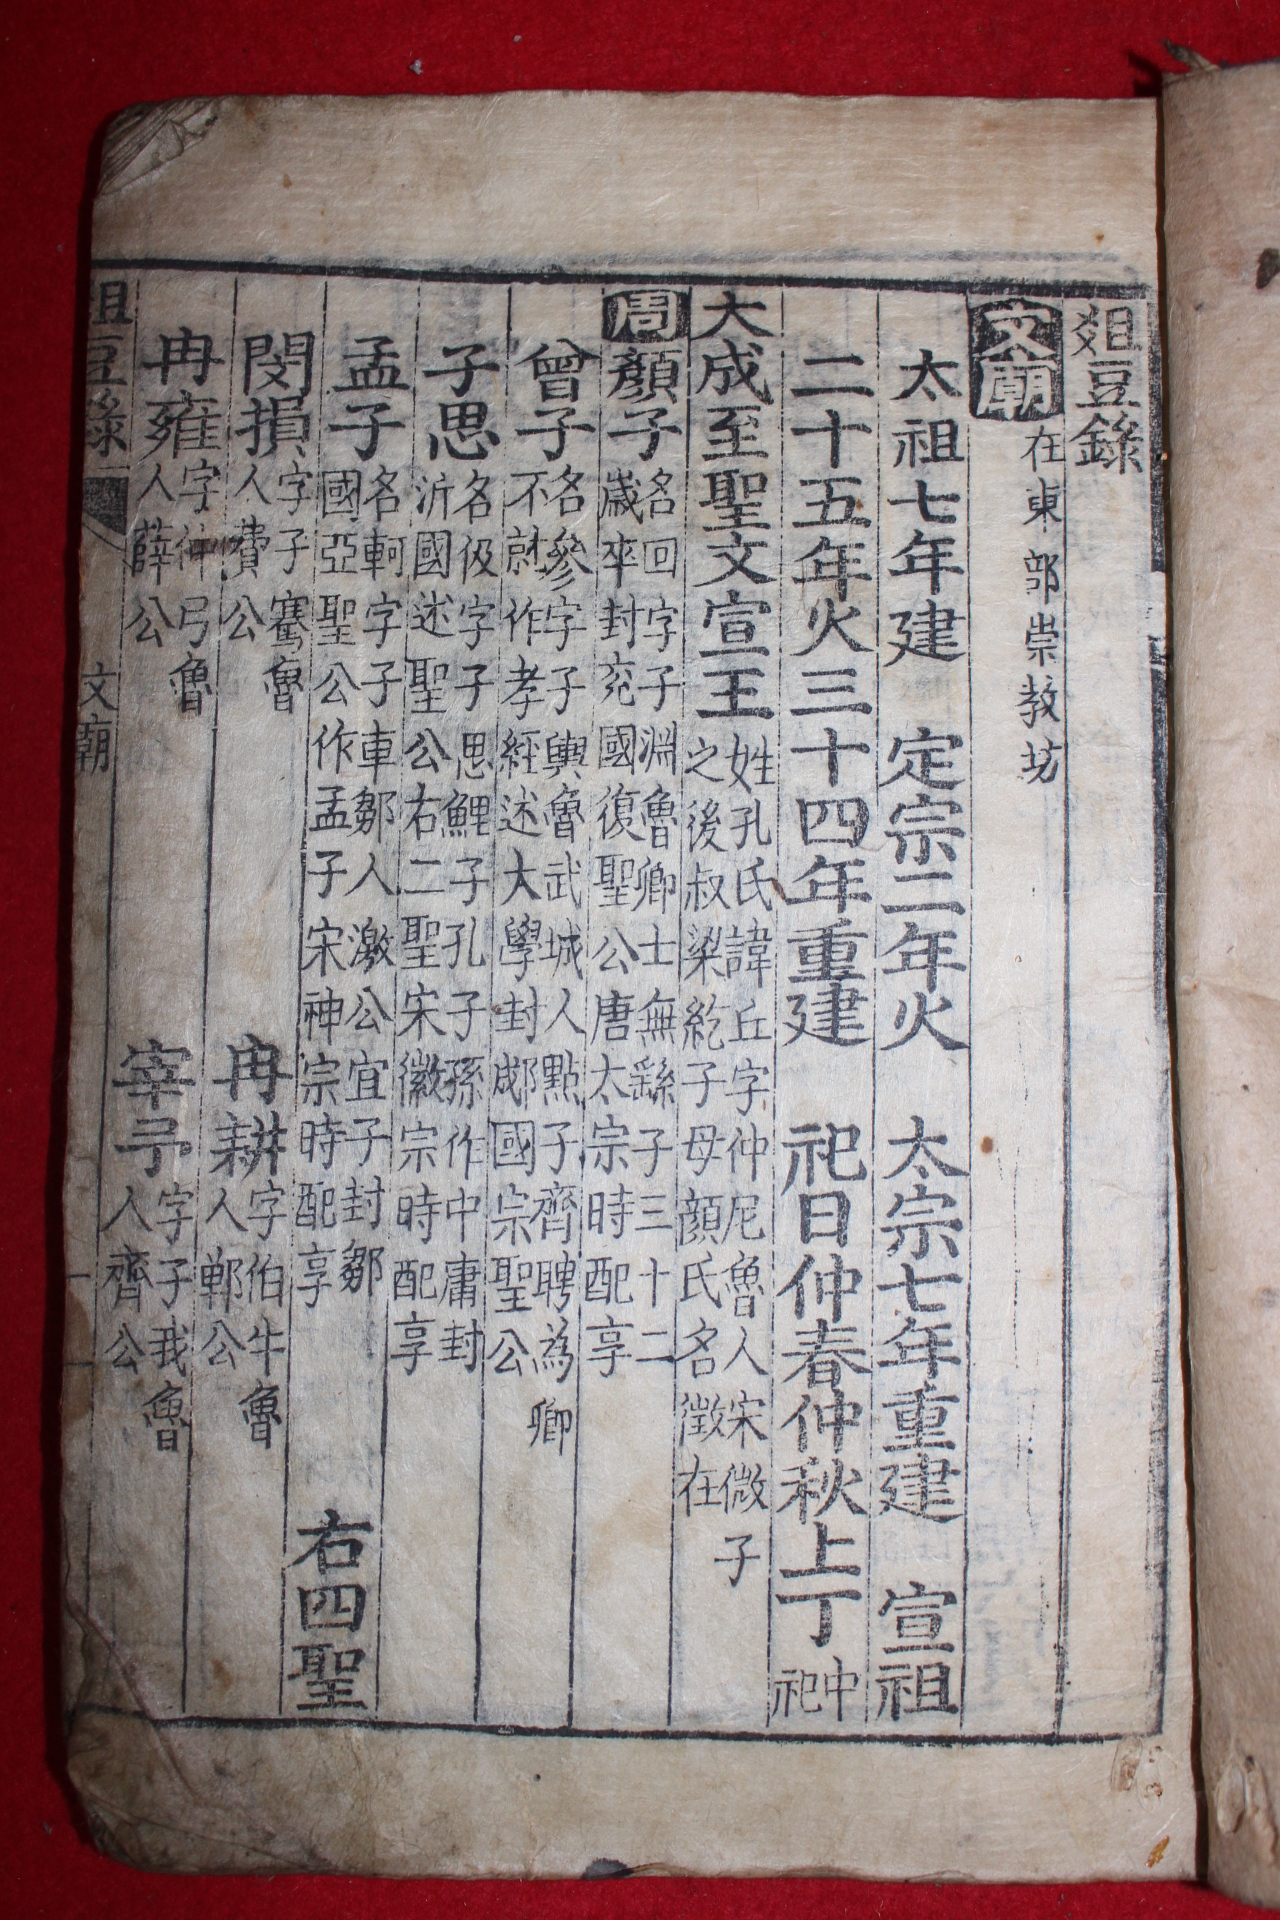 俎豆錄
文廟 在東部崇教坊
太祖七年建 定宗二年火 太宗七年重建 宣祖
二十五年火三十四年重建 祀日仲春仲秋上丁 中祀
大成至聖文宣王 姓孔氏諱丘字仲尼魯人宋微子
之後叔梁紇子母顏氏名徵在
周 顏子 名回字子淵魯卿士無繇子三十二
歲卒封兗國復聖公唐太宗時配享
曾子 名參字子輿魯武城人點子齊聘為卿
不就作孝經述大學封郕國宗聖公
子思 名伋字子思鯉子孔子孫作中庸封
沂國述聖公右二聖宋徽宗時配享
孟子 名軻字子車鄒人激公宜子封鄒
國亞聖公作孟子宋神宗時配享
右四聖
閔損 字子騫魯
人費公
冉耕 字伯牛魯
人鄆公
冉雍 字仲弓魯
人薛公
宰予 字子我魯
人齊公
俎豆錄 文廟 一